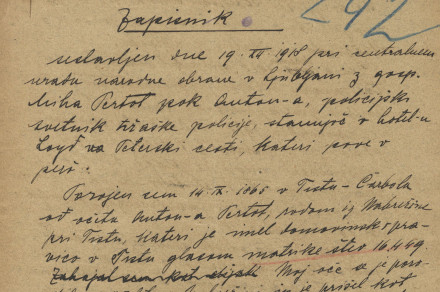 Zapisnik
292
sestavljen dne 19. XII 1918 pri centralnem
uradu narodne obrane v Ljubljani z gosp.
Miha Pertot pok Anton-a, policijski
svetnik tržaške policije, stanujoč v hotel-u
Lloyd na Peterski cesti, kateri pove v
Porojen sem 14. IX. 1865 v Trstu - Carbola
od očeta Anton-a Pertot, rodom iz Nabrežine
pri Trstu, kateri je imel domovinsko pra-
vico v Trstu glasom matrike štev 16.449.
Zahajal sem kot Moj oče a je poro-
je prišel kot